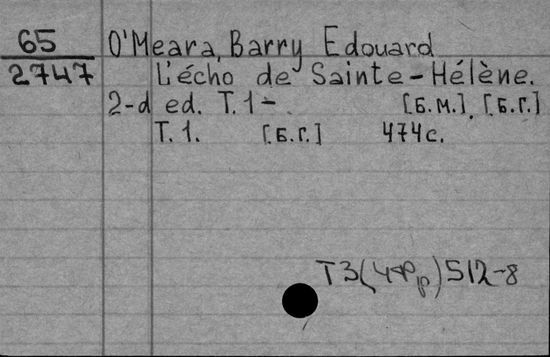 65 O'Meara, Barry Edouard
2747 L'écho de Sainte-Hélène.
2-d ed. T.1- [Б.М.], [Б.Г.]
T. 1. [Б.Г.] 474с.
Т3(4Фр)512-8